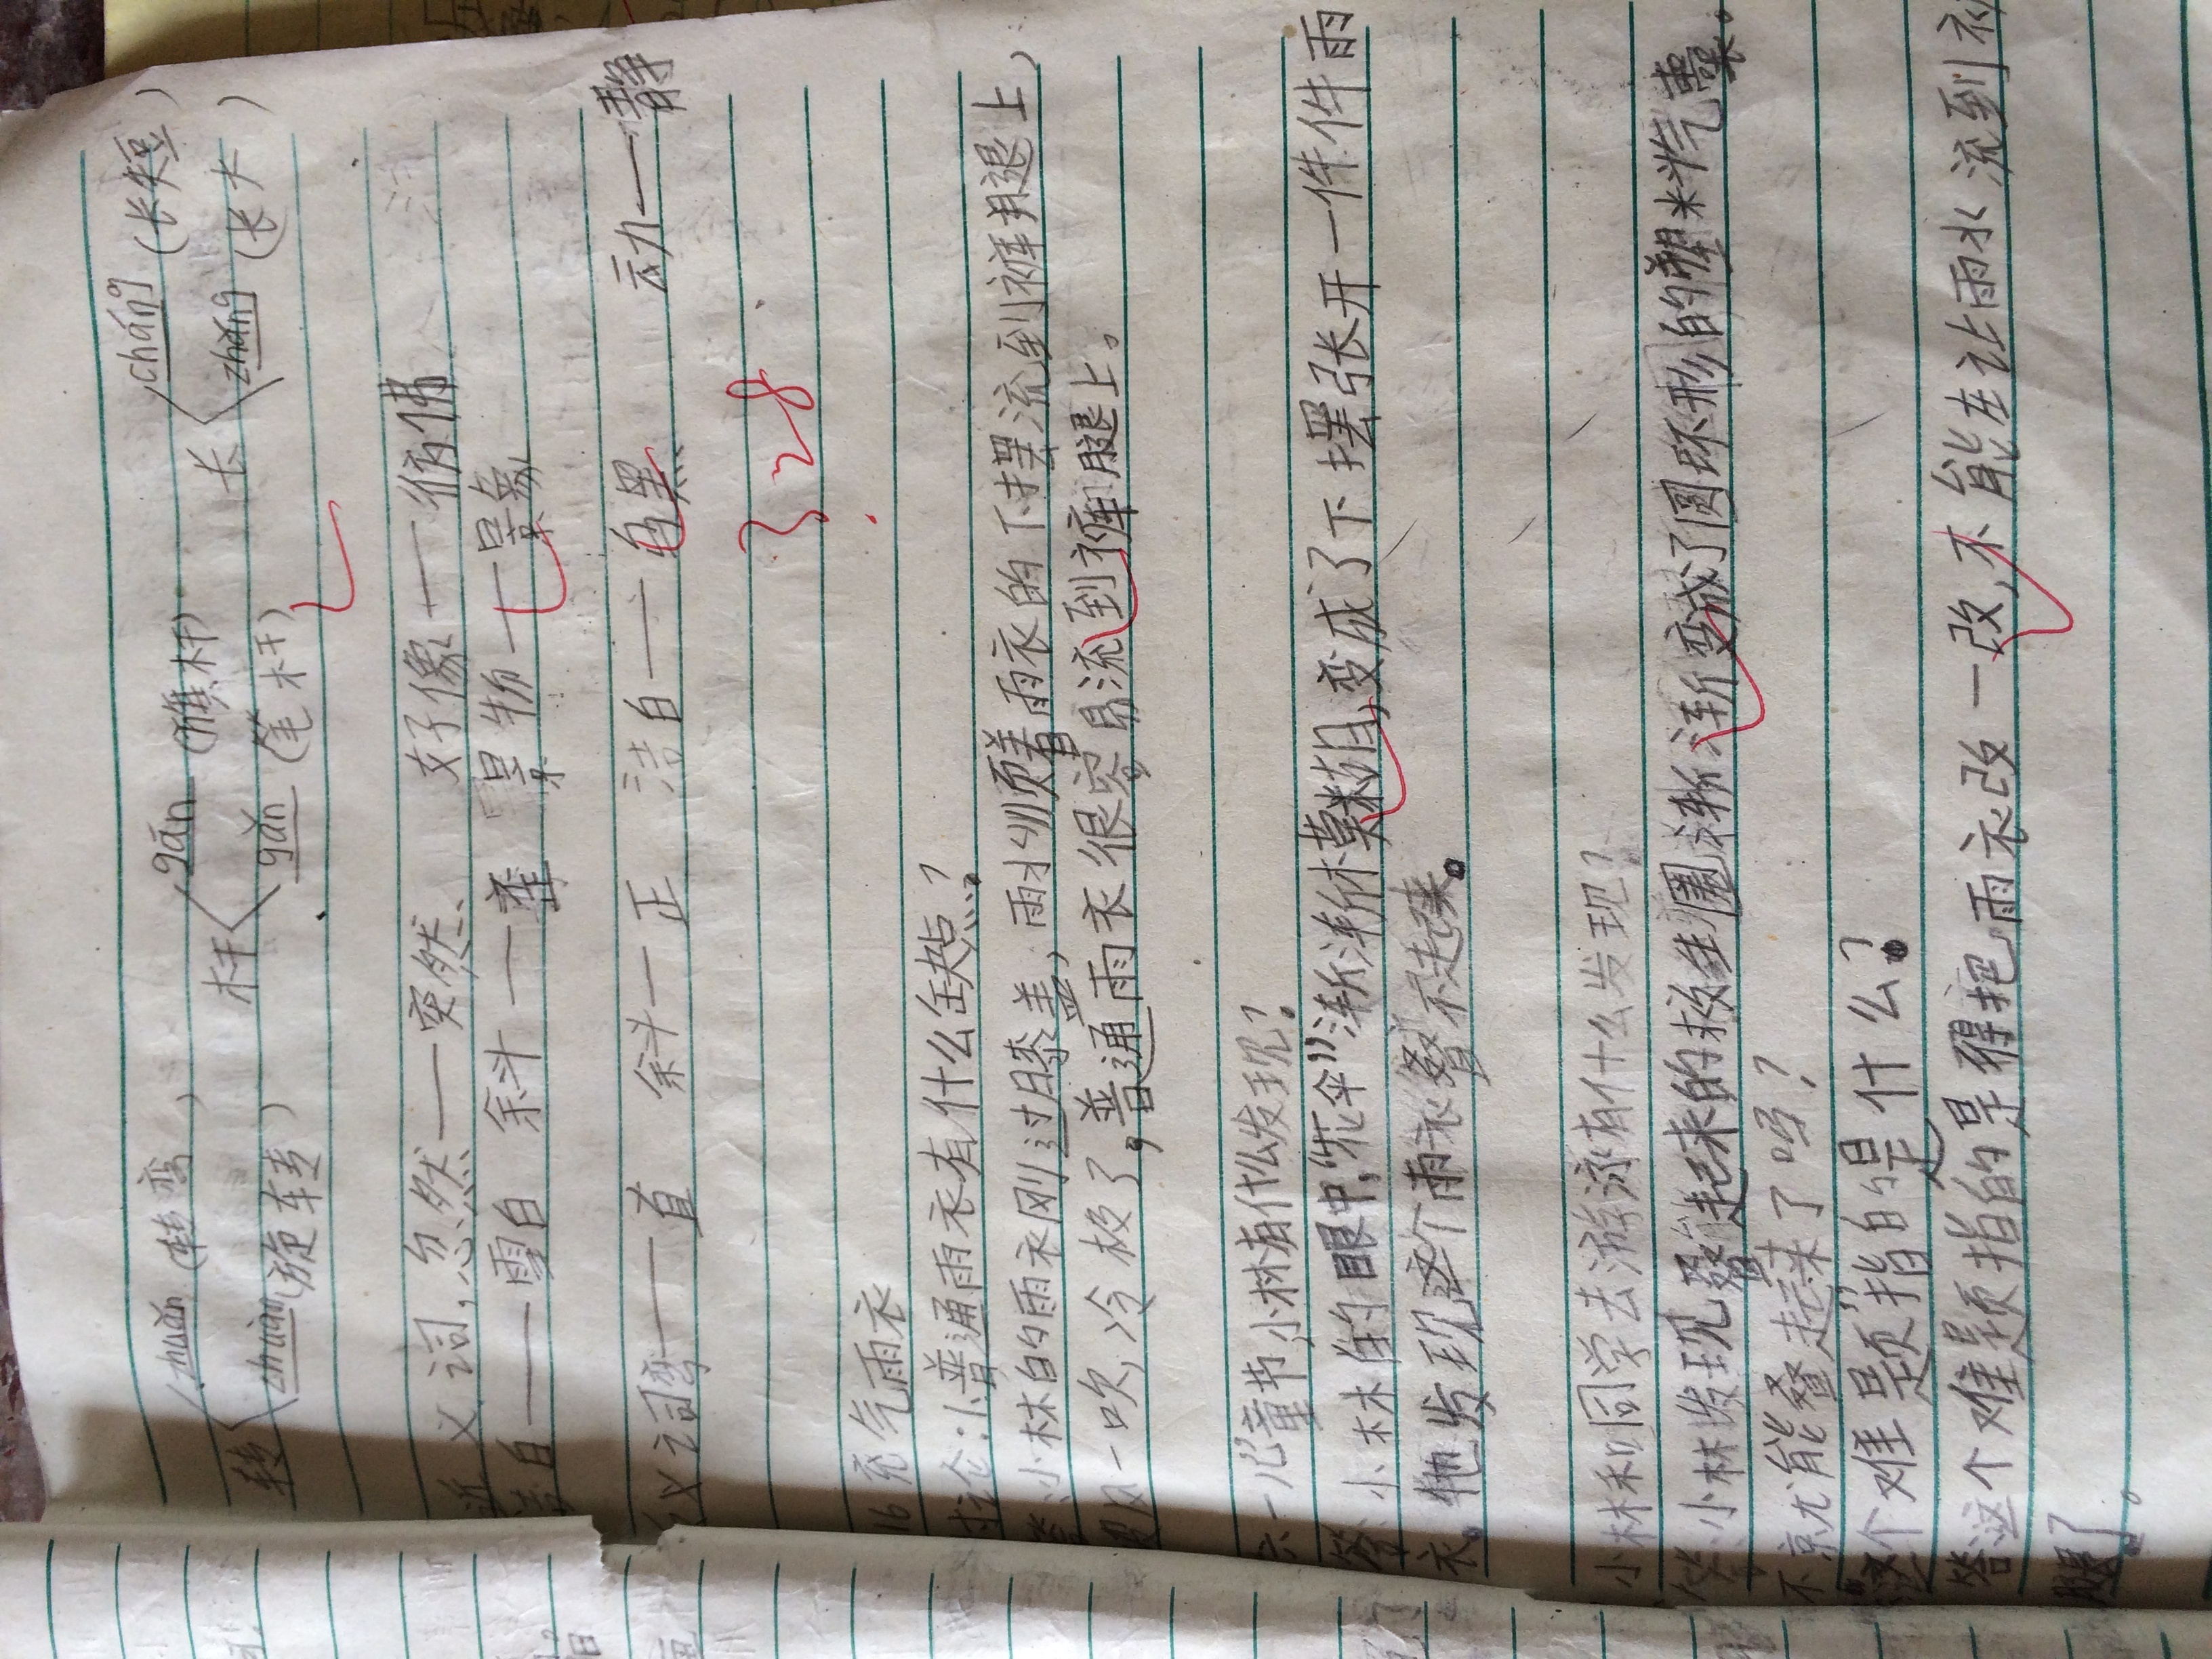 转 zhuǎn (转弯) 杆 gān (旗杆) 长 cháng (长短)
zhuàn (旋转) gǎn (笔杆) zhǎng (长大)
义词: 忽然——突然 好像——仿佛
洁白——雪白 斜——歪 景物——景象
义词 弯——直 斜—正 洁白——乌黑 动——静
3.28
16 充气雨衣
讨论:1、普通雨衣有什么缺点?
答:小林的雨衣刚过膝盖,雨水顺着雨衣的下摆流到裤腿上,
风一吹,冷极了。普通雨衣很容易流到裤腿上。
六一儿童节,小林有什么发现?
答:小林的眼中,“花伞”渐渐模糊,变成了下摆张开一件件雨
衣。他发现这个雨衣叠不起来。
小林和同学去游泳有什么发现?
答:小林发现叠起来的救生圈渐渐变成了圆环形的塑料气囊。
不就能叠起来了吗?
“这个难题”指的是什么?
答:这个难题指的是得把雨衣改一改,不能在让雨水流到裤
腿了。